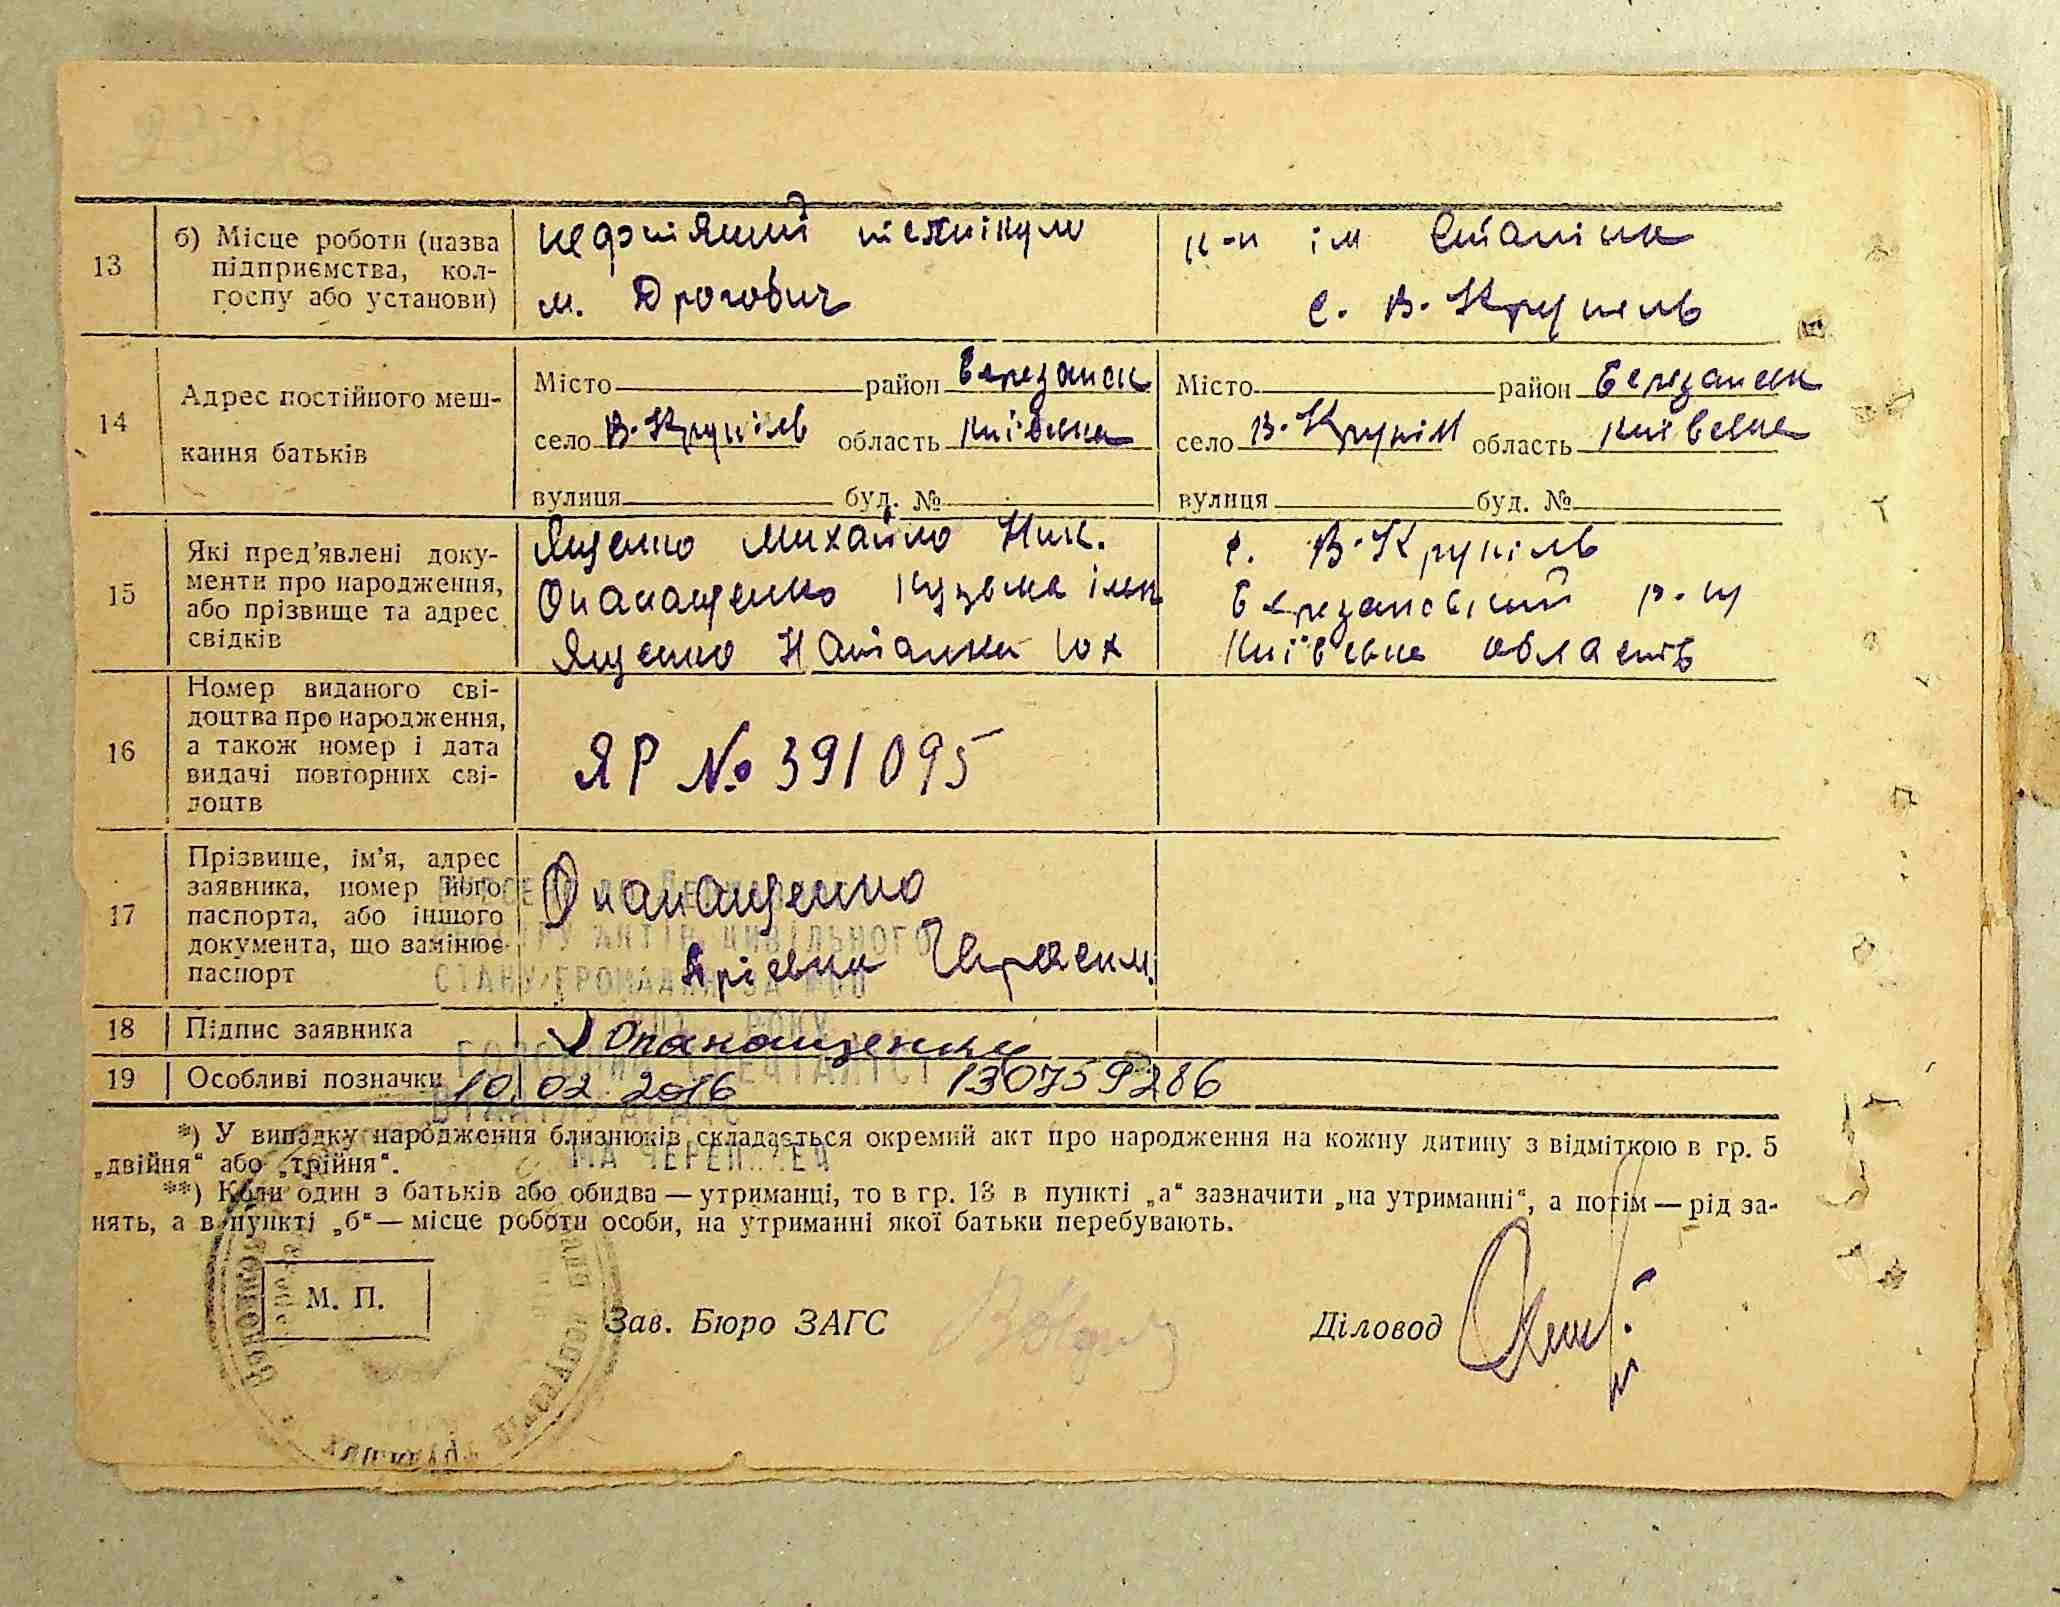 13 б) Місце роботи (назва підприємства, колгоспу або установи)
нефтіяний технікум
м. Дрогобич
к-п ім Сталіна
с. В-Крупель
14 Адрес постійного мешкання батьків
Місто район Березанск
село В-Крупіль область Київська
вулиця буд. №
Місто район Березанск
село В-Крупіл область Київська
вулиця буд. №
15 Які пред'явлені документи про народження, або прізвище та адрес свідків
Ященко Михайло Ник.
Опанащенко Кузьма
Ященко Наталка Юх
с. В-Крупіль
Березанський р-н
Київська область
16 Номер виданого свідоцтва про народження, а також номер і дата видачі повторних свідоцтв
ЯР № 391095
17 Прізвище, ім'я, адрес заявника, номер його паспорта, або іншого документа, що замінює паспорт
Опанащенко
Герасим.
АКТІВ ЦИВІЛЬНОГО
СТАНУ ГРОМАДЯН ЗА
РОКУ
18 Підпис заявника
Опанащенко
19 Особливі позначки 10.02 2016 130759286
*) У випадку народження близнюків складається окремий акт про народження на кожну дитину з відміткою в гр. 5
„двійня" або „трійня".
**) Коли один з батьків або обидва — утриманці, то в гр. 13 в пункті „а" зазначити „на утриманні", а потім — рід за-
нять, а в пункті „б" — місце роботи особи, на утриманні якої батьки перебувають.
М. П.
Зав. Бюро ЗАГС
Діловод